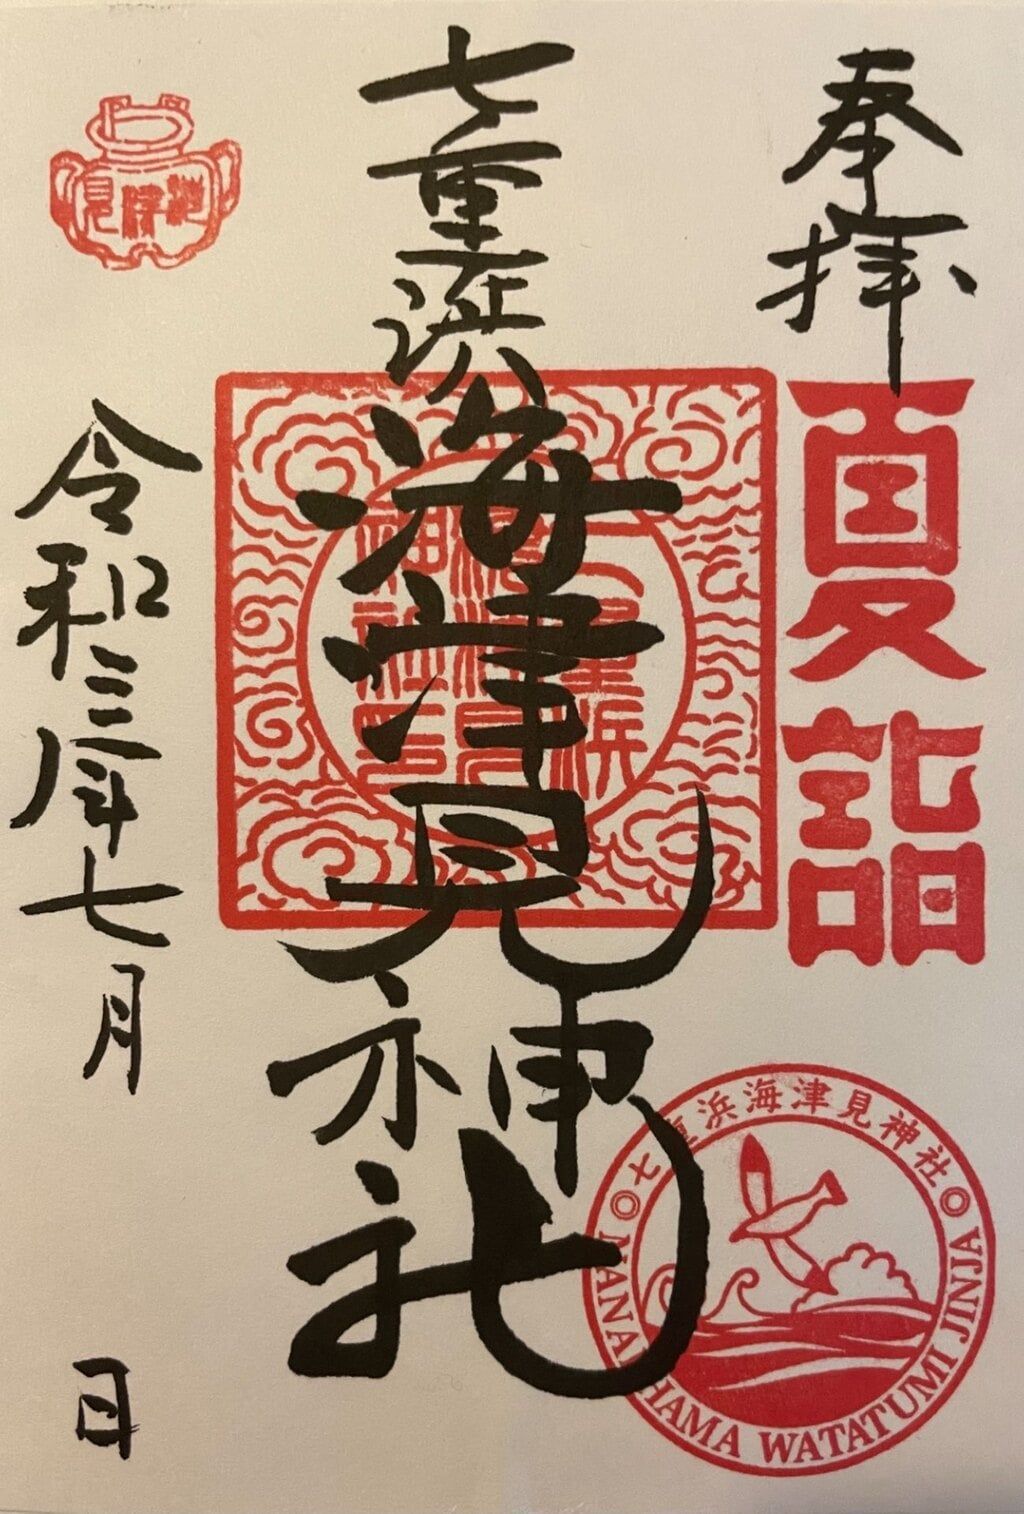 奉拝
夏詣
七重浜海津見神社
七重浜
海津見
神社印
令和三年七月 日
海津見
七重浜海津見神社
NANAEHAMA WATATUMI JINJA